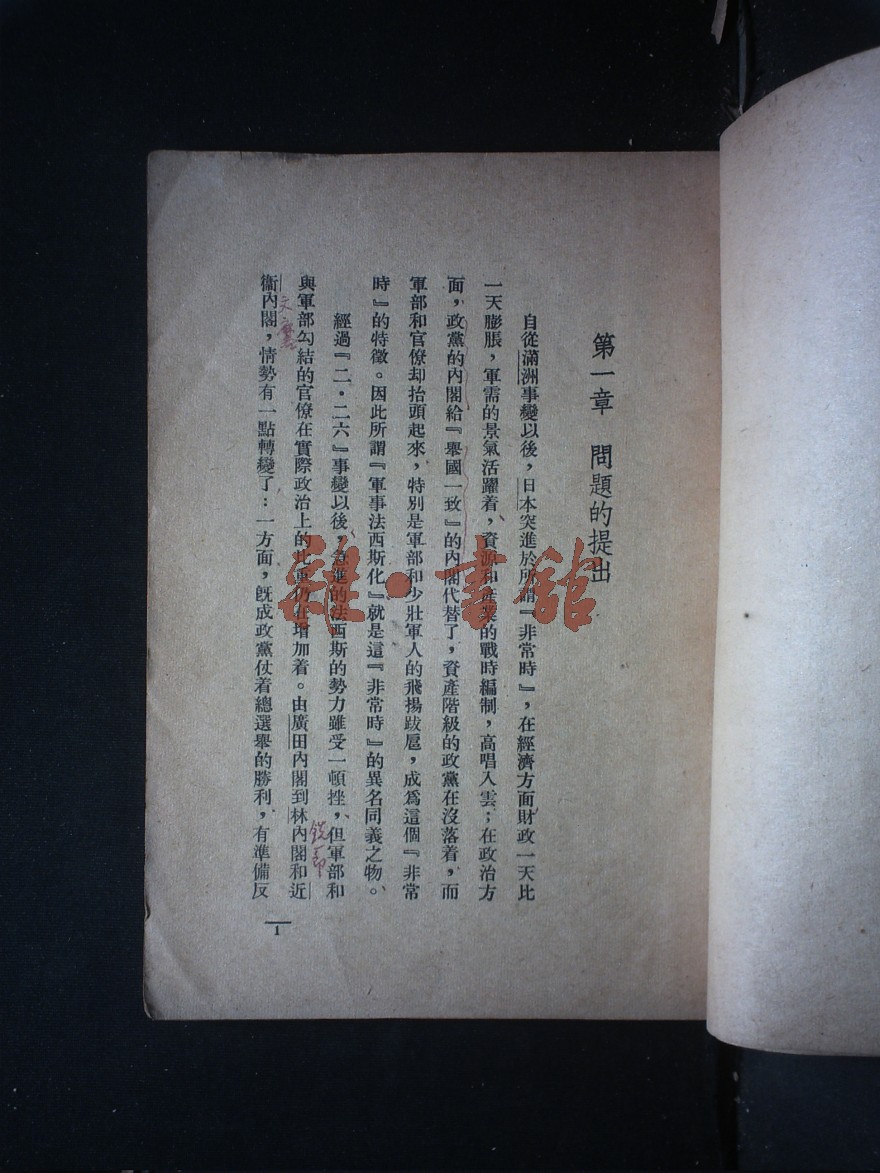 第一章　問題的提出
自從滿洲事變以後，日本突進於所謂『非常時』，在經濟方面財政一天比
一天膨脹，軍需的景氣活躍着，資源和產業的戰時編制，高唱入雲；在政治方
面，政黨的內閣給『舉國一致』的內閣代替了，資產階級的政黨在沒落着，而
軍部和官僚却抬頭起來，特別是軍部和少壯軍人的飛揚跋扈，成爲這個『非常
時』的特徵。因此所謂『軍事法西斯化』就是這『非常時』的異名同義之物。
經過『二・二六』事變以後，急進的法西斯的勢力雖受一頓挫，但軍部和
與軍部勾結的官僚在實際政治上的比重仍在增加着。由廣田內閣到林內閣和近
銑
衞內閣，情勢有一點轉變了：一方面，既成政黨仗着總選舉的勝利，有準備反
文麿
1
雜・書館